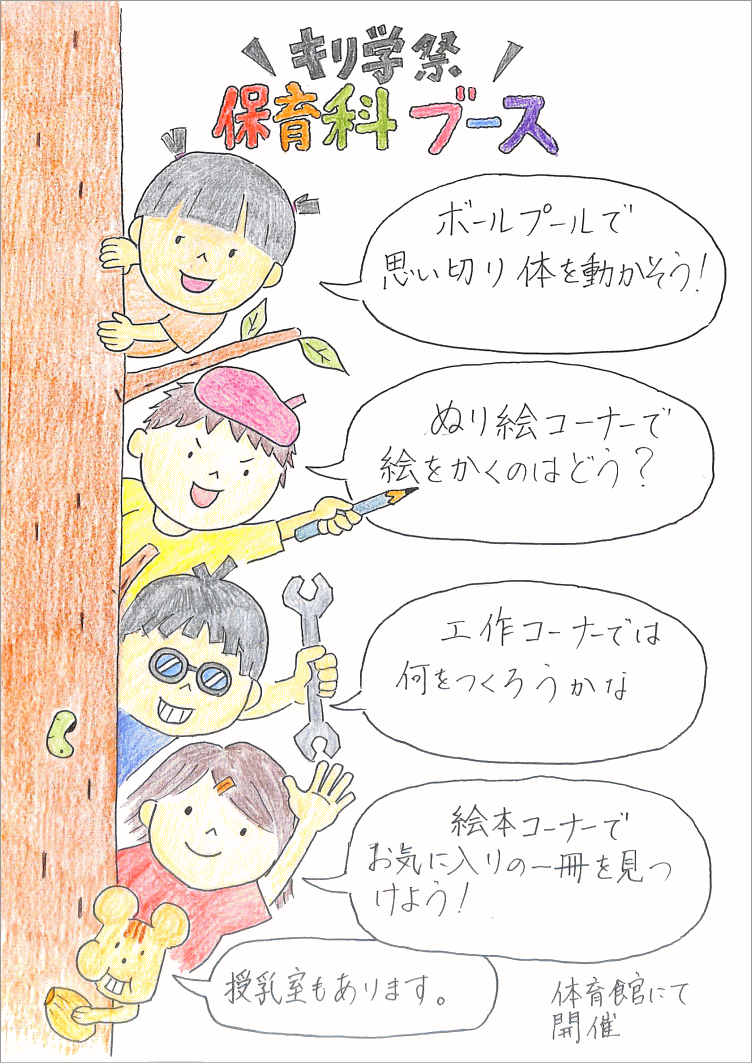 キリ学祭
保育科ブース
ボールプールで
思い切り体を動かそう！
ぬり絵コーナーで
絵をかくのはどう？
工作コーナーでは
何をつくろうかな
絵本コーナーで
お気に入りの一冊を見つ
けよう！
授乳室もあります。
体育館にて
開催